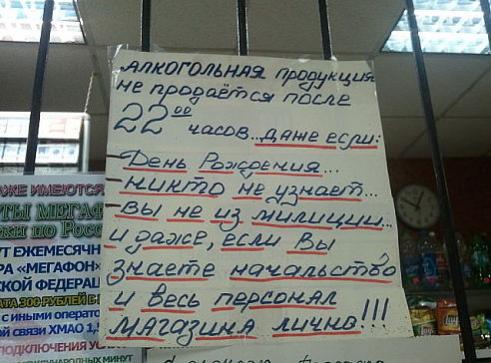 АЛКОГОЛЬНАЯ продукция
не продаётся после
22⁰⁰ часов...даже если:
- День Рождения...
- никто не узнает...
- вы не из милиции...
и даже, если Вы
знаете начальство
и весь персонал
магазина лично!!!
ЖЕ ИМЕЮТСЯ
ТЫ МЕГАФ
ки по Рос
УТ ЕЖЕМЕСЯЧН
РА «МЕГАФОН»
СКОЙ ФЕДЕРАЦ
АТА 300 РУБЛЕЙ В
с иными операто
й связи ХМАО 1,5
ПОДКЛЮЧЕНИЯ УСЛ
МИНУТ